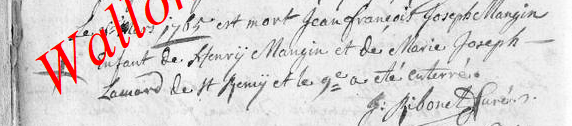 mars 1765 est mort Jean françois Joseph Mangin
Enfant de Henrÿ Mangin et de Marie Joseph
Lamard de St Remÿ et le 9e a eté enterré.
J: Ribonet Curé
Wallon